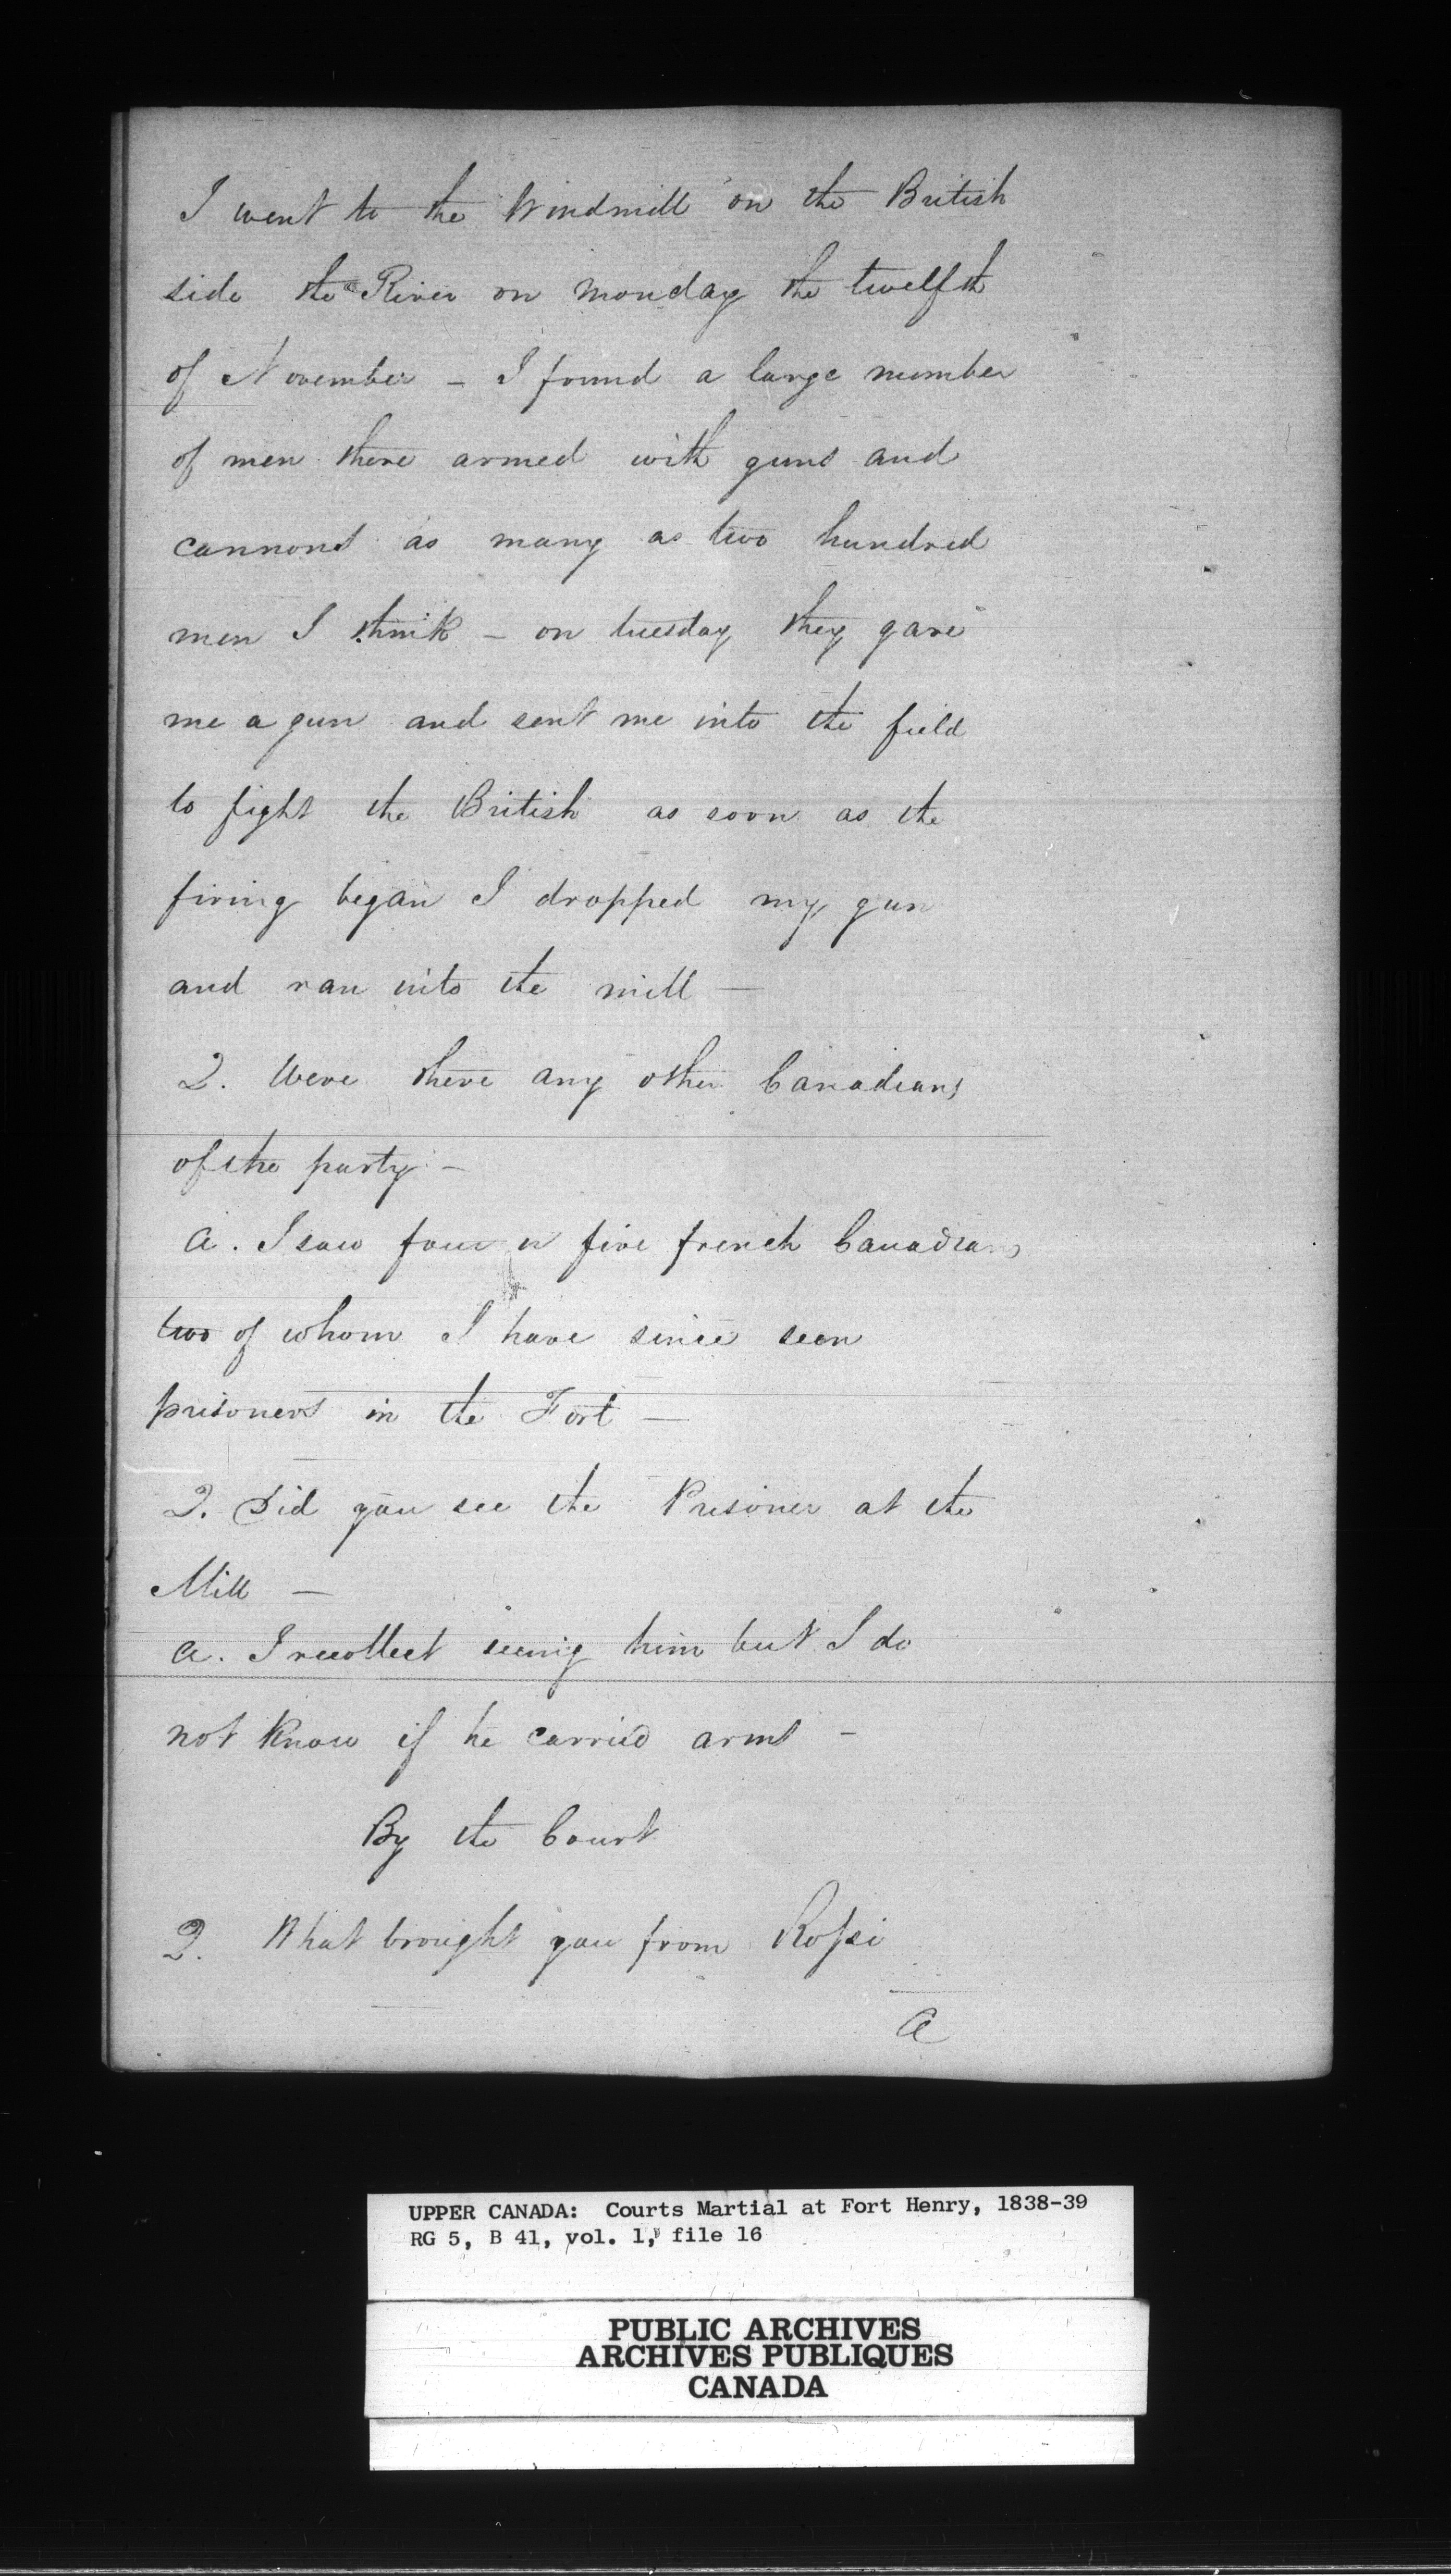 I went to the Windmill on the British
side the River on monday the twelfth
of November - I found a large number
of men there armed with guns and
cannons as many as two hundred
men I think - on tuesday they gave
me a gun and sent me into the field
to fight the British as soon as the
firing began I dropped my gun
and ran into the mill —
Q. Were there any other Canadians
of the party -
A. I saw four or five french Canadians
two of whom I have since seen
prisoners in the Fort —
Q. Did you see the Prisoner at the
Mill —
A. I recollect seeing him but I do
not know if he carried arms -
By the Court
Q. What brought you from Rossi
A
UPPER CANADA: Courts Martial at Fort Henry, 1838-39
RG 5, B 41, vol. 1, file 16
PUBLIC ARCHIVES
ARCHIVES PUBLIQUES
CANADA